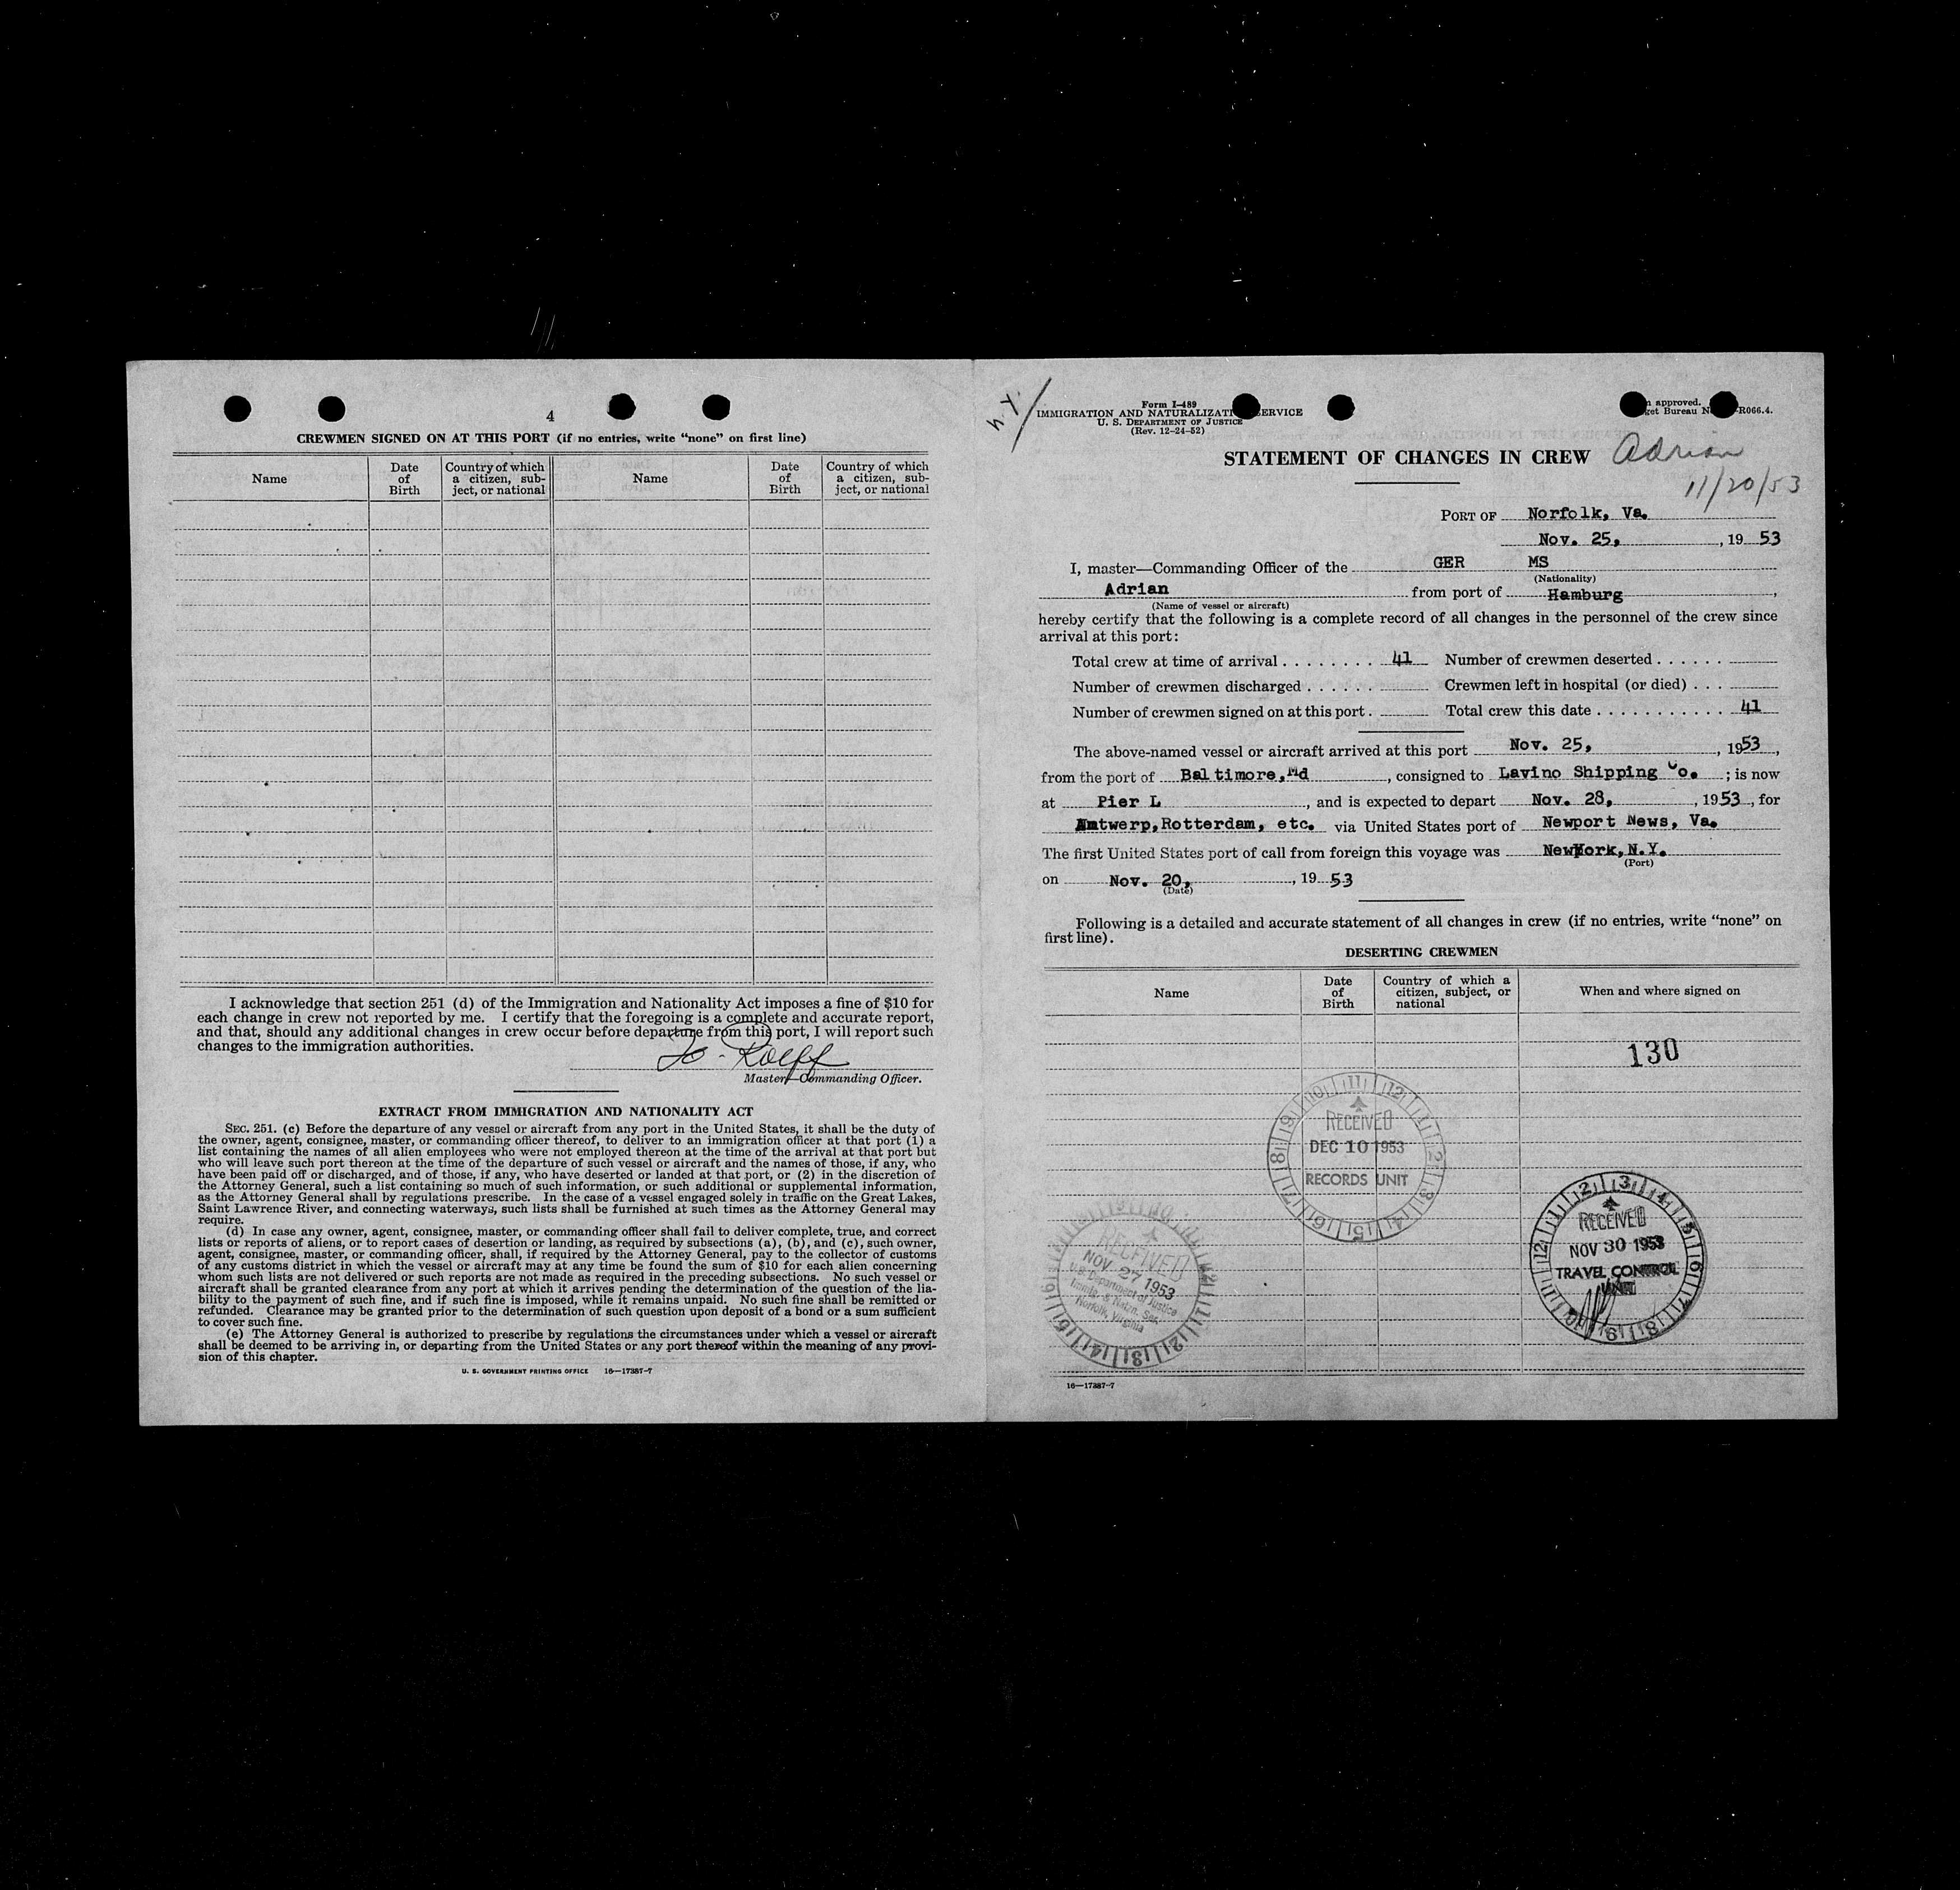 4
CREWMEN SIGNED ON AT THIS PORT (if no entries, write “none” on first line)
Name
Date of Birth
Country of which a citizen, subject, or national
Name
Date of Birth
Country of which a citizen, subject, or national
I acknowledge that section 251 (d) of the Immigration and Nationality Act imposes a fine of $10 for
each change in crew not reported by me. I certify that the foregoing is a complete and accurate report,
and that, should any additional changes in crew occur before departure from this port, I will report such
changes to the immigration authorities.
Roeff
Master—Commanding Officer.
EXTRACT FROM IMMIGRATION AND NATIONALITY ACT
SEC. 251. (c) Before the departure of any vessel or aircraft from any port in the United States, it shall be the duty of
the owner, agent, consignee, master, or commanding officer thereof, to deliver to an immigration officer at that port (1) a
list containing the names of all alien employees who were not employed thereon at the time of the arrival at that port but
who will leave such port thereon at the time of the departure of such vessel or aircraft and the names of those, if any, who
have been paid off or discharged, and of those, if any, who have deserted or landed at that port, or (2) in the discretion of
the Attorney General, such a list containing so much of such information, or such additional or supplemental information,
as the Attorney General shall by regulations prescribe. In the case of a vessel engaged solely in traffic on the Great Lakes,
Saint Lawrence River, and connecting waterways, such lists shall be furnished at such times as the Attorney General may
require.
(d) In case any owner, agent, consignee, master, or commanding officer shall fail to deliver complete, true, and correct
lists or reports of aliens, or to report cases of desertion or landing, as required by subsections (a), (b), and (c), such owner,
agent, consignee, master, or commanding officer, shall, if required by the Attorney General, pay to the collector of customs
of any customs district in which the vessel or aircraft may at any time be found the sum of $10 for each alien concerning
whom such lists are not delivered or such reports are not made as required in the preceding subsections. No such vessel or
aircraft shall be granted clearance from any port at which it arrives pending the determination of the question of the lia-
bility to the payment of such fine, and if such fine is imposed, while it remains unpaid. No such fine shall be remitted or
refunded. Clearance may be granted prior to the determination of such question upon deposit of a bond or a sum sufficient
to cover such fine.
(e) The Attorney General is authorized to prescribe by regulations the circumstances under which a vessel or aircraft
shall be deemed to be arriving in, or departing from the United States or any port thereof within the meaning of any provi-
sion of this chapter.
U. S. GOVERNMENT PRINTING OFFICE 16—17387-7
Form I-489
IMMIGRATION AND NATURALIZATI ERVICE
U. S. DEPARTMENT OF JUSTICE
(Rev. 12-24-52)
approved.
get Bureau N R066.4.
STATEMENT OF CHANGES IN CREW
Adrian
11/20/53
PORT OF Norfolk, Va.
Nov. 25, , 19 53
I, master—Commanding Officer of the GER MS
(Nationality)
Adrian from port of Hamburg ,
(Name of vessel or aircraft)
hereby certify that the following is a complete record of all changes in the personnel of the crew since
arrival at this port:
Total crew at time of arrival . . . . . . . . 41 Number of crewmen deserted . . . . . .
Number of crewmen discharged . . . . . . Crewmen left in hospital (or died) . . .
Number of crewmen signed on at this port . Total crew this date . . . . . . . . . . . 41
The above-named vessel or aircraft arrived at this port Nov. 25, , 1953 ,
from the port of Baltimore, Md , consigned to Lavino Shipping Co. ; is now
at Pier L , and is expected to depart Nov. 28, , 1953 , for
Antwerp, Rotterdam, etc. via United States port of Newport News, Va.
The first United States port of call from foreign this voyage was New York, N.Y.
(Port)
on Nov. 20, , 19 53
(Date)
Following is a detailed and accurate statement of all changes in crew (if no entries, write “none” on
first line).
DESERTING CREWMEN
Name
Date of Birth
Country of which a citizen, subject, or national
When and where signed on
130
RECEIVED
DEC 10 1953
RECORDS UNIT
RECEIVED
NOV 27 1953
U.S. Department of Justice
Immig. & Natzn. Ser.
Norfolk, Virginia
RECEIVED
NOV 30 1953
TRAVEL CONTROL
UNIT
16—17387-7